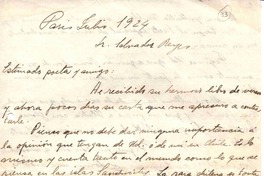 Paris Julio 1924
Sr. Salvador Reyes
Estimado poeta y amigo:
He recibido su hermoso libro de versos
y ahora pocos dias su carta que me apresuro a contes-
tarle.
Pienso que no debe dar ninguna importancia a
la opinión que tengan de Ud. o de mi en Chile.
y cuenta tanto en el mundo como lo que se
piensa en las islas Sandwiches. La